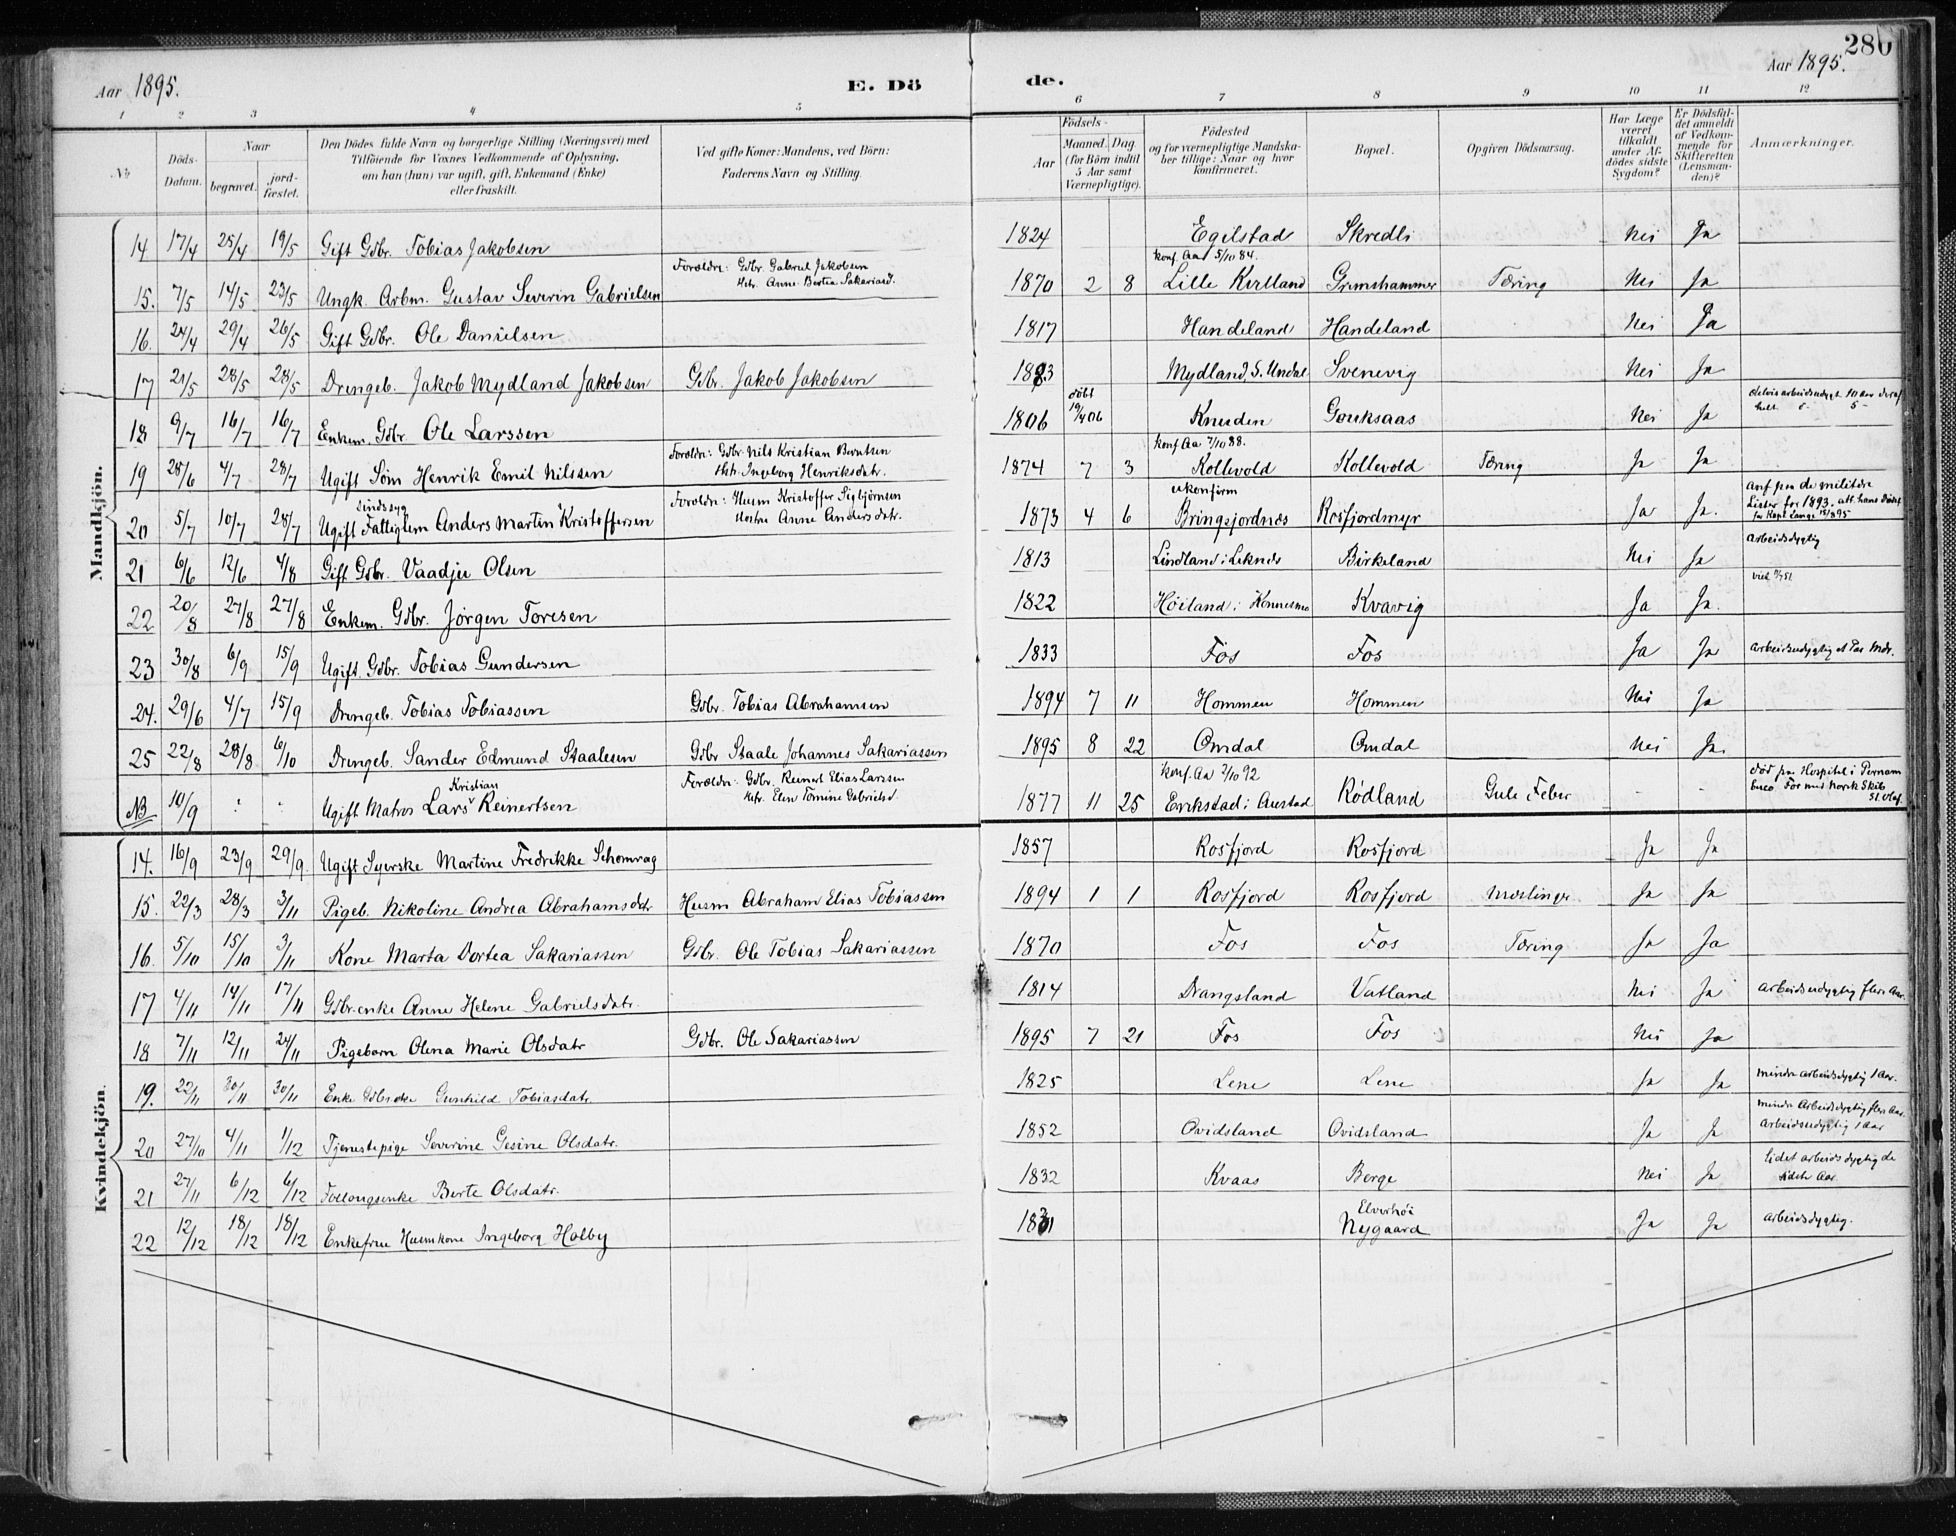 280
Aar 1895.
E. Dö de.
Aar 1895.
1 2 3 4 5 6 7 8 9 10 11 12
No
Döds-Datum.
Naar
begravet.
jord-fæstet.
Den Dödes fulde Navn og borgerlige Stilling (Næringsvei) med
Tilföiende for Voxnes Vedkommende af Oplysning,
om han (hun) var ugift, gift, Enkemand (Enke)
eller fraskilt.
Ved gifte Koner: Mandens, ved Börn:
Faderens Navn og Stilling.
Födsels-
Aar
Maaned. Dag.
(for Börn indtil
5 Aar samt
Værnepligtige).
Födested
og for værnepligtige Mandska-
ber tillige: Naar og hvor
konfirmeret.
Bopæl.
Opgiven Dödsaarsag.
Har Læge
været
tilkaldt
under Af-
dödes sidste
Sygdom?
Er Dödsfal-
det anmeldt
af Vedkom-
mende for
Skifteretten
(Lensman-
den)?
Anmærkninger.
Mandkjön.
14 17/4 25/4 19/5 Gift Gdbr. Tobias Jakobsen 1824 Egilstad Skredli Nei Ja
Forældre: Gdbr. Gabriel Jakobsen konf. Aa 5/10 84.
15. 7/5 14/5 23/5 Ungk. Arbm. Gustav Severin Gabrielsen Hstr. Anne Bertea Sakariasd. 1870 2 8 Lille Kvelland Grimshammer Tæring Nei Ja
16. 24/4 29/4 26/5 Gift Gdbr. Ole Danielsen 1817 Handeland Handeland Nei Ja
17 21/5 28/5 28/5 Drengeb. Jakob Mydland Jakobsen Gdbr. Jakob Jakobsen 1893 Mydland, S. Undal Svenevig Nei Ja
18 9/7 16/7 16/7 Enkem. Gdbr. Ole Larssen 1806 døbt 19/4 06 Knuden Gouksaas Nei Ja delvis arbeidsudygt. 10 Aar deraf
helt 5
Forældr: Gdbr. Nils Kristian Berntsen konf Aa 7/10 88.
19 28/6 4/7 28/7 Ugift Søm Henrik Emil Nilssen Hstr. Ingeborg Henriksdatr. 1874 7 3 Kollevold Kollevold Tæring Ja Ja
sindssyg Forældr: Husm Kristoffer Sigbjörnsen ukonfirm
20 5/7 10/7 28/7 Ugift Fattiglem Anders Martin Kristoffersen Hustru Anne Andersdatr. 1873 4 6 Bringsjordnes Rosfjordmyr Ja Ja. anf paa de militære
Lister for 1893. att. hans Dødsf
for Kapt Lange 15/8 95
21 6/6 12/6 4/8 Gift Gdbr. Vaadje Olsen 1813 Lindland i Leknes Birkeland Nei Ja arbeidsdygtig
22 20/8 27/8 27/8 Enkem. Gdbr. Jörgen Toresen 1822 Høiland i Konnesmo Kvavig Ja Ja.
23 30/8 6/9 15/9 Ugift Gdbr. Tobias Gundersen 1833 Fos Fos Ja Ja arbeidsudygtig et Par Mdr.
24. 29/6 4/7 15/9 Drengeb. Tobias Tobiassen Gdbr. Tobias Abrahamsen 1894 7 11 Hommen Hommen Nei Ja
25 22/8 28/8 6/10 Drengeb. Sander Edmund Staalesen Gdbr Staale Johannes Sakariassen 1895 8 22 Omdal Omdal Nei Ja.
Kristian Forældr: Gdbr. Reinert Elias Larssen konf. Aa 2/10 92
NB 10/9 Ugift Matros Lars Reinertsen Hstr. Elen Tomine Gabrielsd. 1877 11 25 Erikstad i Austad Rödland Gule Feber - - død paa Hospital i Pernam
buco. For med norsk Skib
St Olaf.
Kvindekjön.
14. 16/9 23/9 29/9 Ugift Syerske Martine Fredrikke Schomrag 1857 Rosfjord Rosfjord Ja Ja
15. 22/3 28/3 3/11 Pigeb. Nikoline Andrea Abrahamsdtr Husm Abraham Elias Tobiassen 1894 1 1 Rosfjord Rosfjord mæslinger Ja Ja
16. 5/10 15/10 3/11 Kone Marta Dortea Sakariassen Gdbr. Ole Tobias Sakariassen 1870 Fos Fos Tæring Ja Ja
17 4/11 14/11 17/11 Gdbr.enke Anne Helene Gabrielsdatr. 1814 Drangsland Vatland Nei Ja arbeidsudygtig flere Aar.
18 7/11 12/11 24/11 Pigebarn Olena Marie Olsdatr Gdbr. Ole Sakariassen 1895 7 21 Fos Fos Nei Ja
19. 22/11 30/11 30/11 Enke Gunhild Tobiasdatr. 1825 Lene Lene Ja Ja mindre arbeidsdygtig 1 Aar.
20 27/10 4/11 1/12 Tjenestepige Severine Gesine Olsdatr. 1852 Ovidsland Ovidsland Ja Ja mindre Arbeidsdygtig flere Aar.
arbeidsudygtig 1 Aar
21 27/11 6/12 6/12 Berte Olsdatr. 1832 Kvaas Berge Nei Ja Lidet arbeidsdygtig de
sidste Aar.
22 12/12 18/12 18/12 Enkefrue Ingeborg Holby Elverhöi
Nygaard Ja Ja arbeidsdygtig.